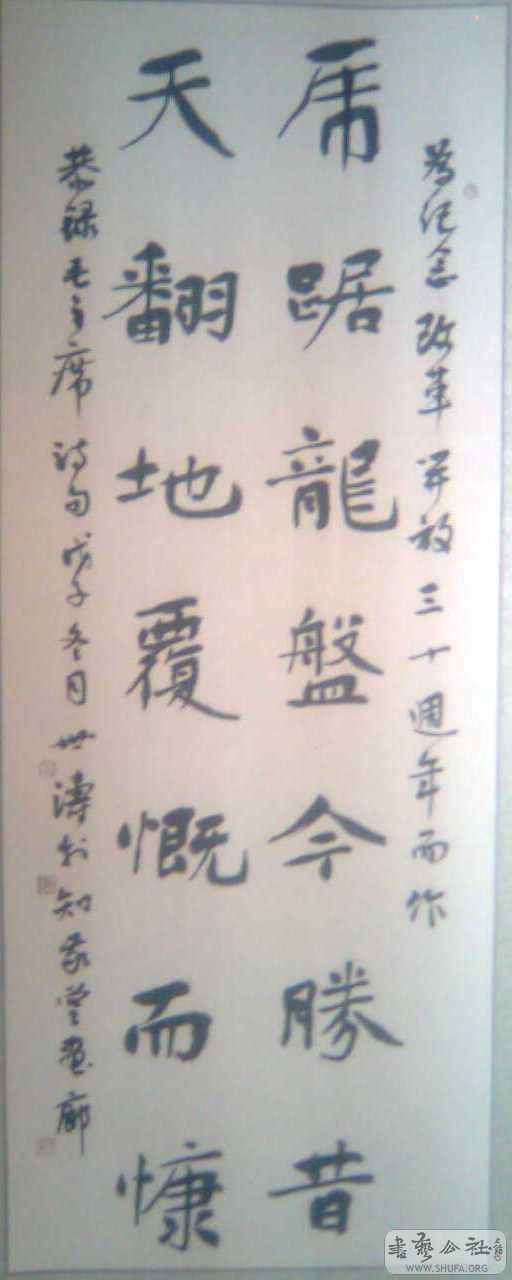 為纪念改革開放三十週年而作
虎踞龍盤今勝昔
天翻地覆慨而慷
恭録毛主席詩句戊子冬月世濤於知堂畫廊
書藝公社
WWW.SHUFA.ORG